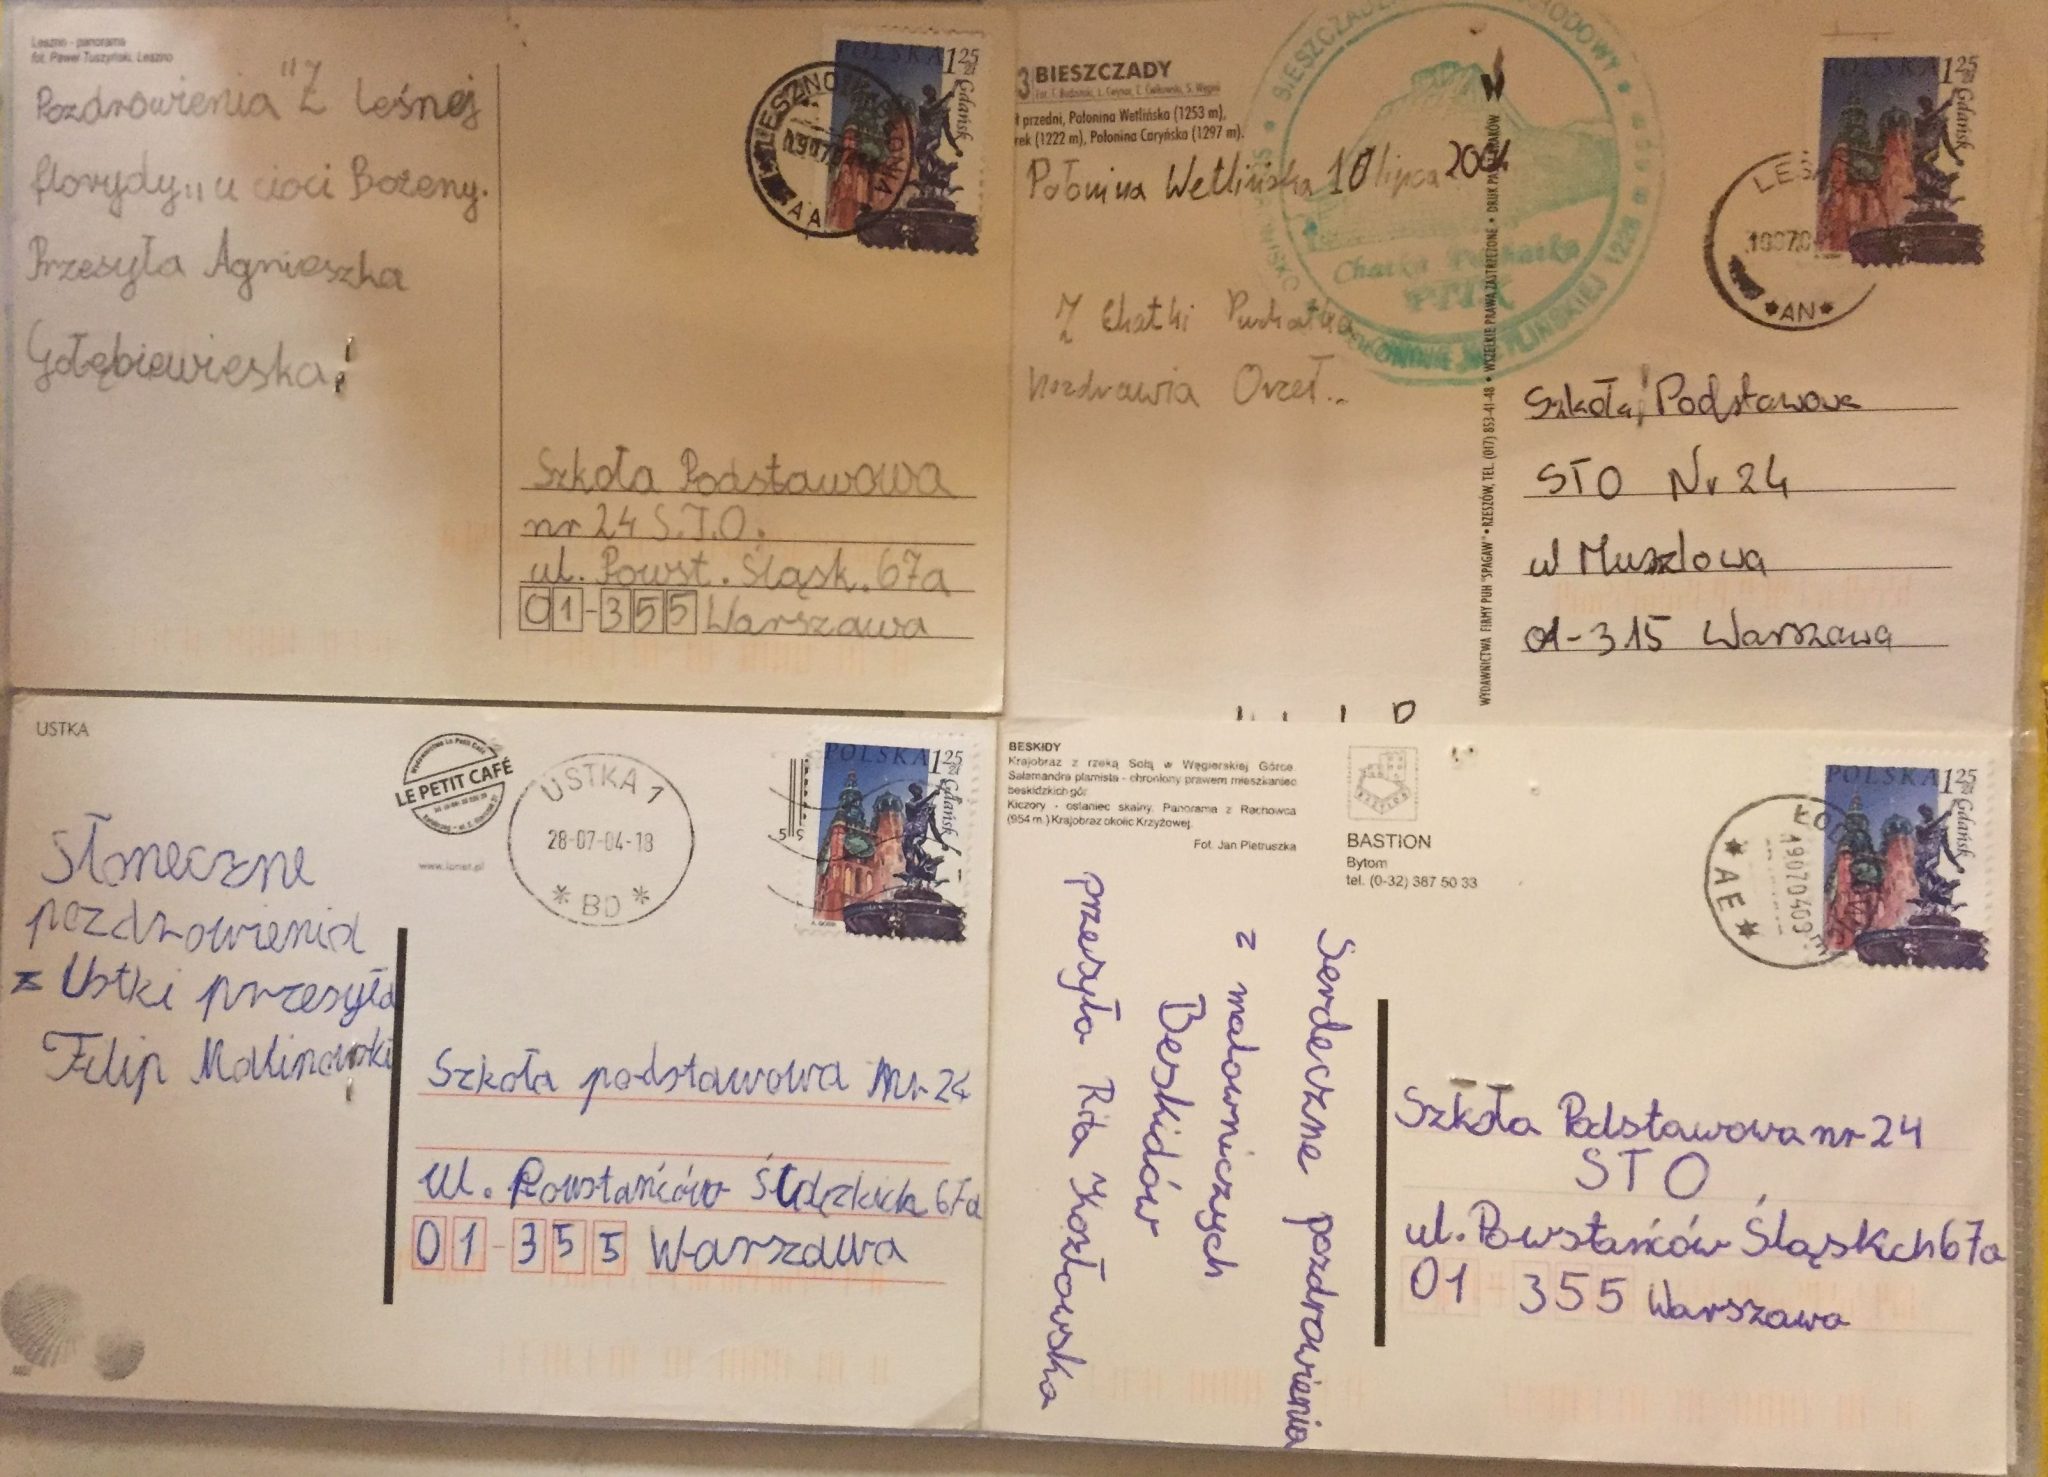 Leszno - panorama
fot. Paweł Tuszyński, Leszno
Pozdrowienia "Z Leśnej
florydy,, u cioci Bożeny.
Przesyła Agnieszka
Gołębiewieska
POLSKA 1 25 zł
Gdańsk
LESZNO
AA
Szkoła Podstawowa
nr 24 S.T.O.
ul. Powst. Śląsk. 67a
01-355 Warszawa
3 BIESZCZADY
przedni, Połonina Wetlińska (1253 m),
rek (1222 m), Połonina Caryńska (1297 m).
Połonina Wetlińska 10 lipca 2004
Z Chatki Puchatka
pozdrawia Orzeł..
Chatka Puchatka
PTTK
WETLIŃSKIEJ 1228
WYDAWNICTWA FIRMY PUH "SPAGAW" • RZESZÓW, TEL. (017) 853-41-48 • WSZELKIE PRAWA ZASTRZEŻONE • DRUK
POLSKA 1 25 zł
Gdańsk
LES
*AN*
Szkoła Podstawowa
STO Nr 24
ul Muszlowa
01-315 Warszawa
USTKA
LE PETIT CAFÉ
USTKA 1
28-07-04-18
* BD *
POLSKA 1 25 zł
Gdańsk
Słoneczne
pozdrowienia
z Ustki przesyła
Filip Malinowski
Szkoła podstawowa Nr 24
ul. Powstańców Śląskich 67a
01-355 Warszawa
BESKIDY
Krajobraz z rzeką Sołą w Węgierskiej Górce.
Salamandra plamista - chroniony prawem mieszkaniec
beskidzkich gór.
Kiczory - ostaniec skalny. Panorama z Rachowca
(954 m.) Krajobraz okolic Krzyżowej.
Fot. Jan Pietruszka
BASTION
Bytom
tel. (0-32) 387 50 33
POLSKA 1 25 zł
Gdańsk
*AE*
Serdeczne pozdrowienia
z malowniczych
Beskidów
przesyła Rita Kozłowska
Szkoła Podstawowa nr 24
STO
ul. Powstańców Śląskch 67a
01 355 Warszawa